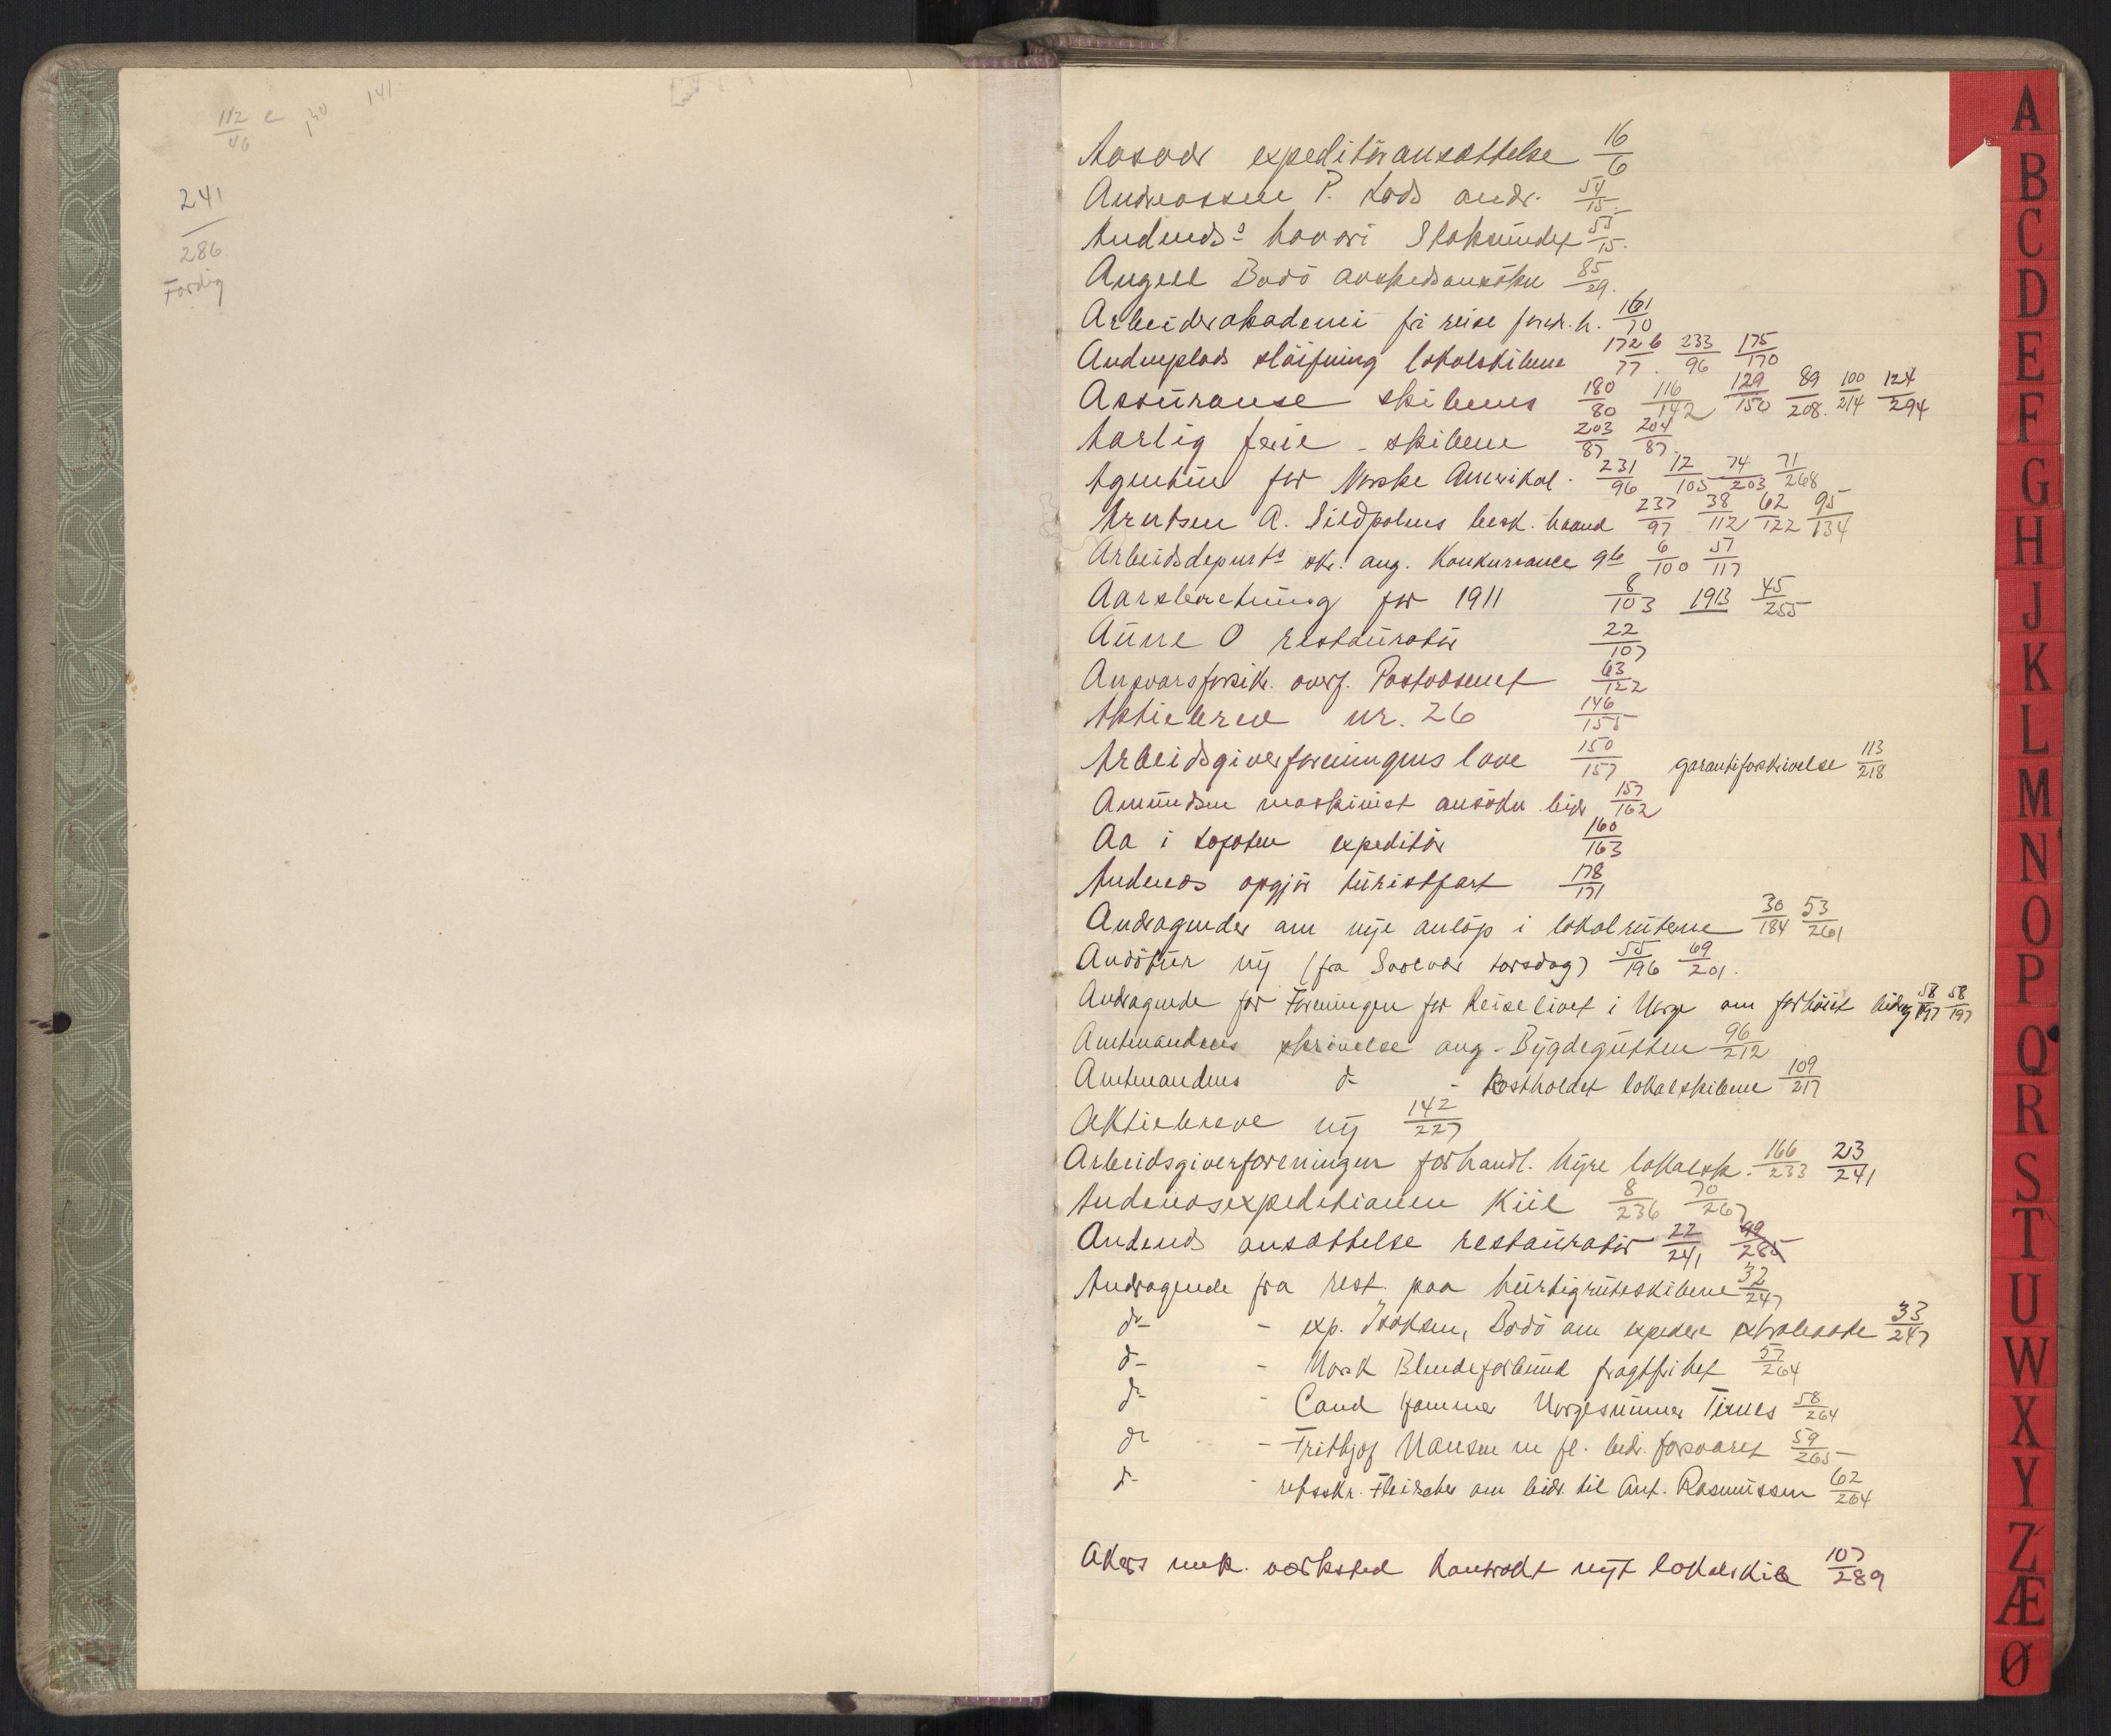 112/46 e 130 141
241/286
Færdig
Aasvær expeditöransættelse 16/6
Andreassen P. Lods andr. 54/15
Andenæs's havari Stoksundet 55/15
Angell Bodö avskedsansökn 85/29
Arbeiderakademi fri reise foredr.h. 161/70
Andenplads slöifning lokalskibene 172b/77 233/96 175/170
Assüranse skibenes 180/80 116/142 129/150 89/208 100/214 124/294
Aarlig ferie - skibene 203/87 204/87
Agentür for Norske Amerikal. 231/96 12/105 74/203 71/268
Arntsen A. Sildpolens besk. haand 237/97 38/112 62/122 95/134
Arbeidsdepart.s skr. ang. Konkurrance 9de 6/100 57/117
Aarsberetning for 1911 8/103 1913 45/255
Aüne O restaüratör 22/107
Ansvarsforsikr. overf. Postvæsenet 63/122
Aktiebrev nr. 26 146/155
Arbeidsgiverforeningens love 150/157 garantiforskrivelse 113/218
Amündsen maskinist ansökn bidr 157/162
Aa i Lofoten expeditör 160/163
Andenæs opgjör türistfart 178/171
Andragender om nye anlöp i lokalrüterne 30/184 53/261
Andötür ny (fra Svolvær torsdag) 55/196 69/201
Andragende for Foreningen for Reiselivet i Norge om forhöiet bidrag 58/197 58/197
Amtmandens skrivelse ang. Bygdegütten 96/212
Amtmandens do - Kostholdet lokalskibene 109/217
Aktiebreve ny 142/227
Arbeidsgiverforeningen forhandl. hyre lokalsk. 166/233 213/241
Andenæsexpeditionen Kiil 8/236 70/267
Andenæs ansættelse restaüratör 22/241 99/285
Andragende fra rest. paa hürtigrüteskibene 32/247
do - exp. Isaksen, Bodö om expedere extrabaade 33/247
do - Norsk Blindeforbünd fragtfrihet 57/264
do - Cand Hammer Norgesnümmer Times 58/264
do - Frithjof Nansen m fl. bidr. forsvaret 59/265
do - retsskr. Fleischer om bidr. til Ant. Rasmüssen 62/264
Akers mek. værksted kontrakt nyt lokalskib 107/289
A
B
C
D
E
F
G
H
J
K
L
M
N
O
P
Q
R
S
T
U
W
X
Y
Z
Æ
Ø